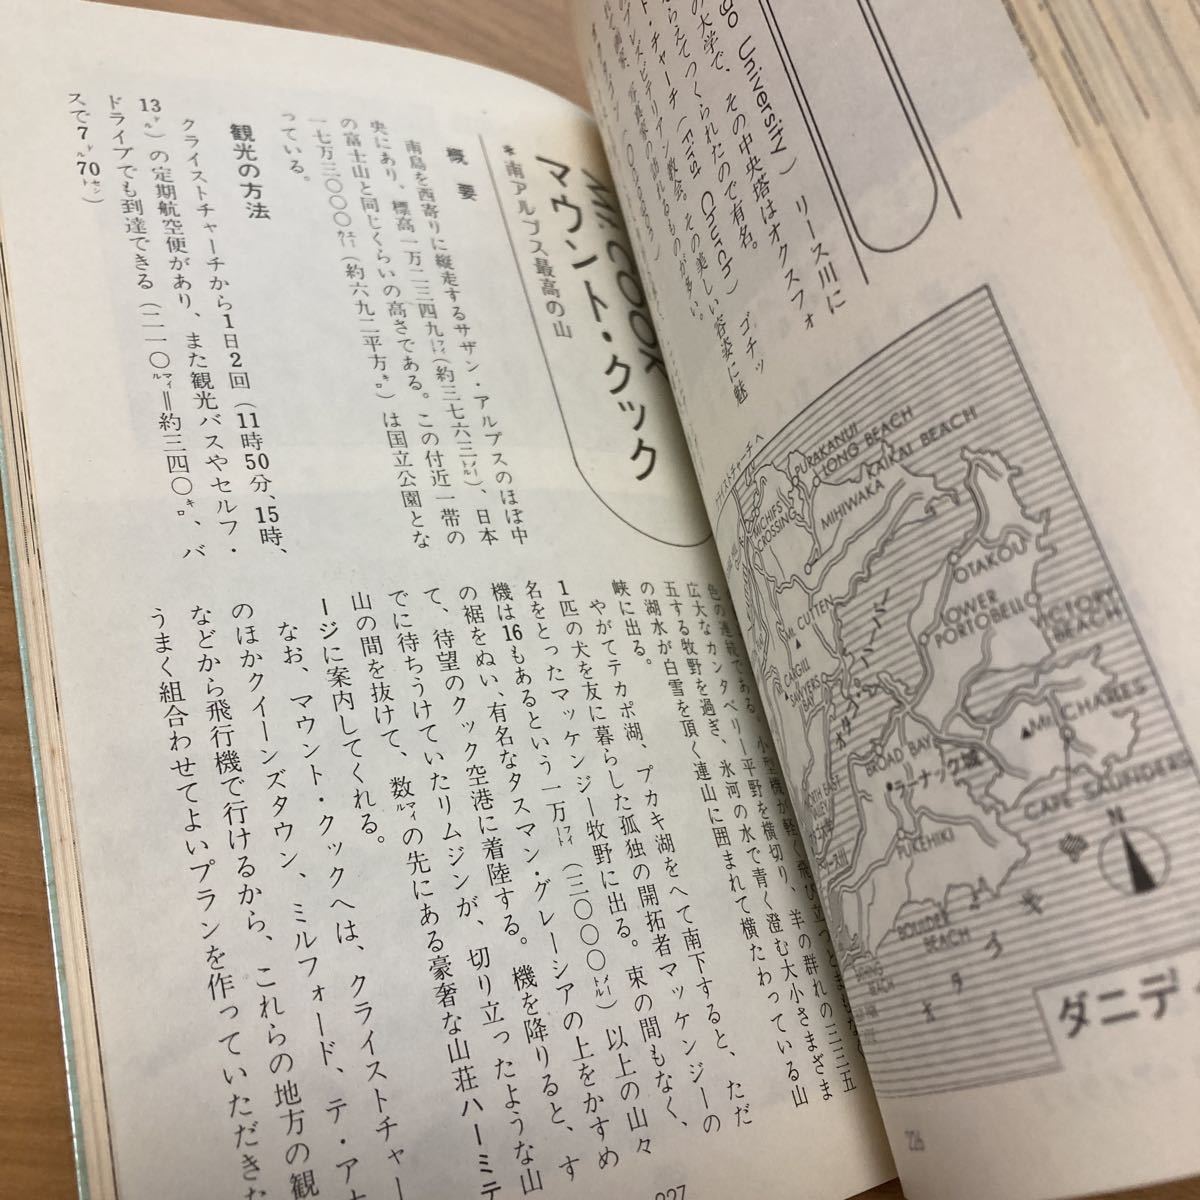 go University) リース川に
の大学で、その中央塔はオクスフォ
らえてつくられたので有名。
ト・チャーチ(First Church) ゴチッ
プレスビテリアン教会。その美しい容姿に魅
クライストチャーチへ
PURAKANUI
LONG BEACH
KAIKAI BEACH
MIHIWAKA
MICHIFS CROSSING
OTAKOU
LOWER PORTOBELLO
VICTORY BEACH
Mt. CUTTEN
CARGILL
SAWYERS BAY
Mt. CHARLES
BROAD BAY
ラーナック城
CAPE SAUNDERS
NORTH EAST VALLEY
PUKEHIKI
BOULDER BEACH
N
オタゴ
ダニデ
226
Mt. COOK
マウント・クック
*南アルプス最高の山
概要
南島を西寄りに縦走するサザン・アルプスのほぼ中
央にあり、標高一万二三四九フィート(約三七六三メートル)、日本
の富士山と同じくらいの高さである。この付近一帯の
一七万三〇〇〇エーカー(約六九二平方キロ)は国立公園とな
っている。
観光の方法
クライストチャーチから1日2回(11時50分、15時、
13ドル)の定期航空便があり、また観光バスやセルフ・
ドライブでも到達できる(二一〇マイル=約三四〇キロ、バ
スで7ドル70セント)
色の連続である。小型機が軽く飛び立つとまもなく
広大なカンタベリー平野を横切り、羊の群れの三三五
五する牧野を過ぎ、氷河の水で青く澄む大小さまざま
の湖水が白雪を頂く連山に囲まれて横たわっている山
峡に出る。
やがてテカポ湖、プカキ湖をへて南下すると、ただ
1匹の犬を友に暮らした孤独の開拓者マッケンジーの
名をとったマッケンジー牧野に出る。束の間もなく、
機は16もあるという一万フィート(三〇〇〇メートル)以上の山々
の裾をぬい、有名なタスマン・グレーシアの上をかすめ
て、待望のクック空港に着陸する。機を降りると、す
でに待ちうけていたリムジンが、切り立ったような山
山の間を抜けて、数マイルの先にある豪奢な山荘ハーミテ
ージに案内してくれる。
なお、マウント・クックへは、クライストチャー
のほかクイーンズタウン、ミルフォード、テ・アナ
などから飛行機で行けるから、これらの地方の観
うまく組合わせてよいプランを作っていただきた
227